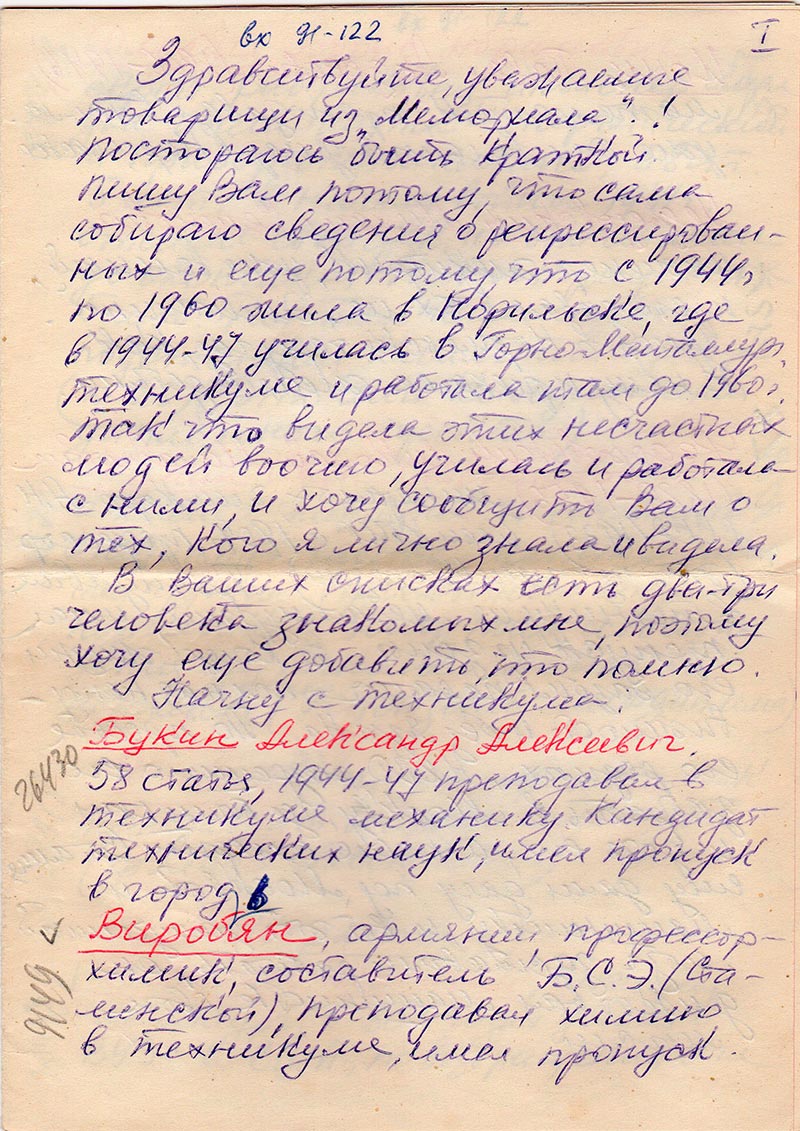 вх 91-122
I
Здравствуйте, уважаемые
товарищи из „Мемориала“!
Постораюсь быть краткой.
Пишу Вам потому, что сама
собираю сведения о репрессирован-
ных и еще потому, что с 1944г
по 1960 жила в Норильске, где
в 1944-47 училась в Горно-Металлург
техникуме и работала там до 1960г.
Так что видела этих несчастных
людей воочию, училась и работала
с ними, и хочу сообщить Вам о
тех, кого я лично знала и видела.
В Ваших списках есть два-три
человека знакомых мне, поэтому
хочу еще добавить, что помню.
Начну с техникума:
Букин Александр Алексеевич.
26430
58 статья, 1944-47 преподавал в
техникуме механику. Кандидат
технических наук, имел пропуск
в город. в
Виробян, армянин, профессор-
химик, составитель Б.С.Э. (Ста-
9149 ✓
линской), преподавал химию
в техникуме, имел пропуск.